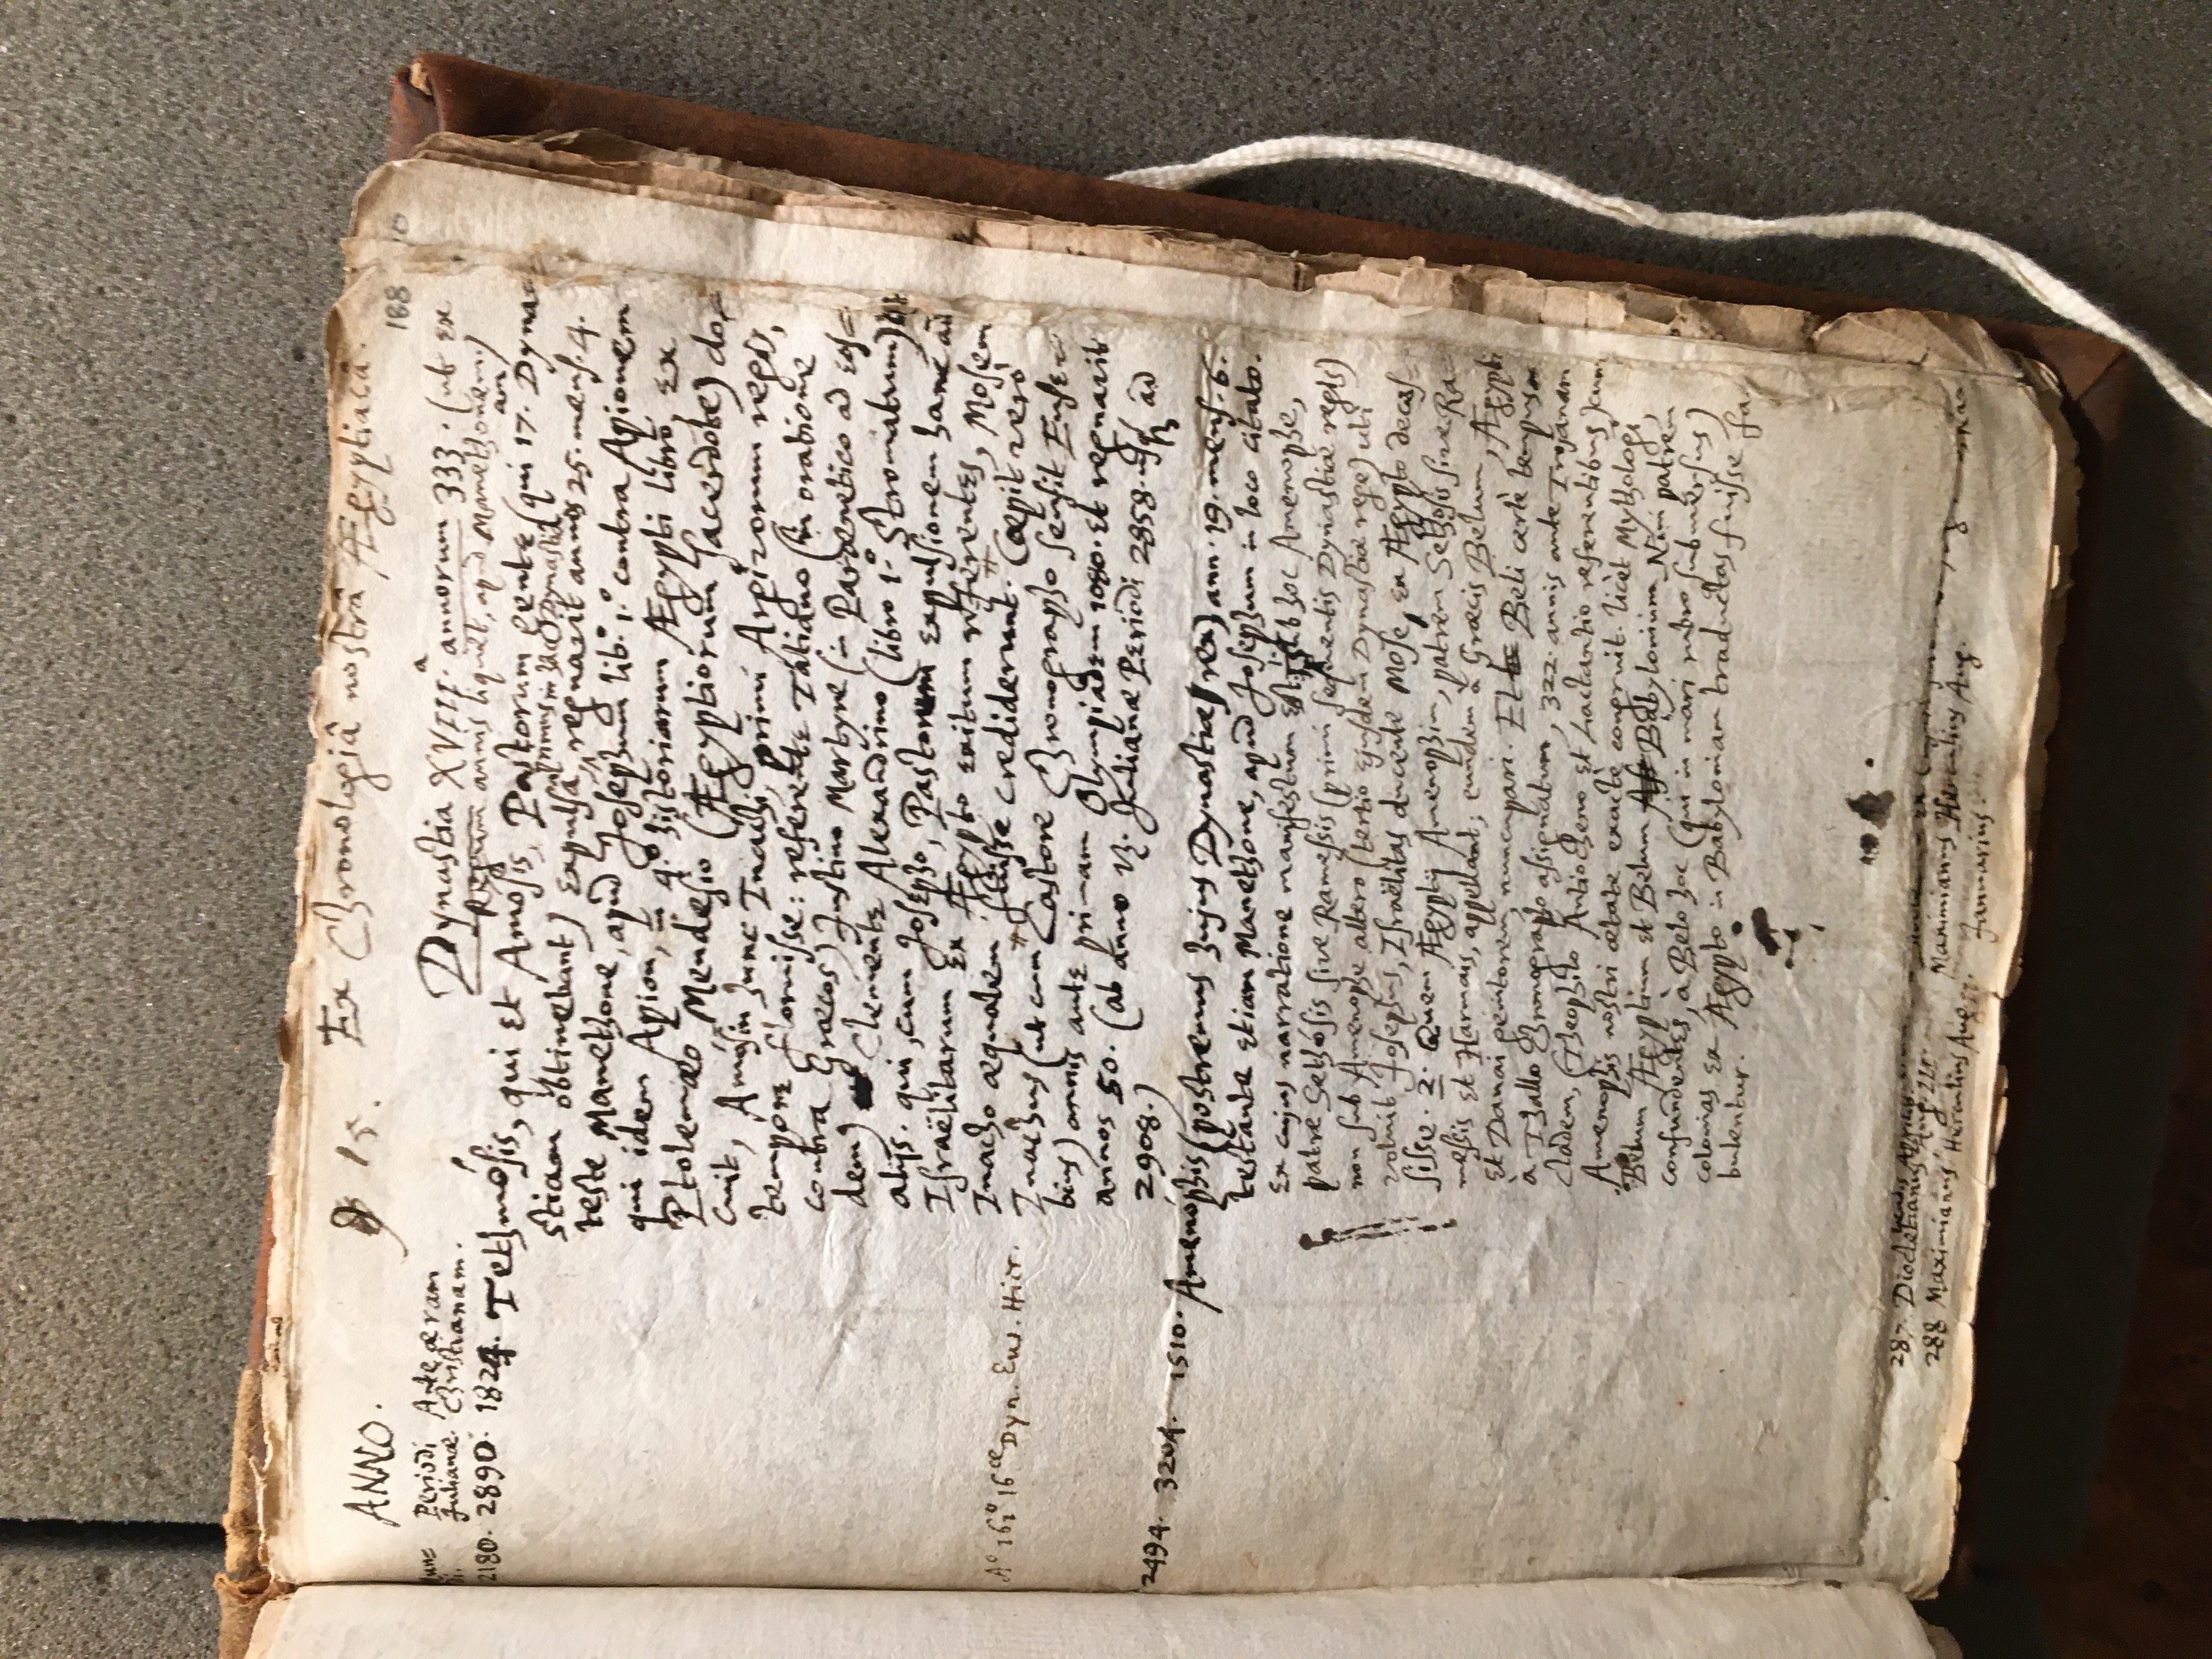 188
Ex Chronologiâ nostrâ Ægyptiacâ.
15.
ANNO.
Periodi Julianæ.
Ante æram Christianam.
Dynastia XVIII.a annorum 333. (ut ex
Regum annis liquet, apud Manethonem.)
2180. 2890. 1824. Tethmósis, qui et Amosis, Pastorum gente (qui 17. Dyna
stiam obtinebant) expulsâ, regnavit annos 25. mens. 4.
teste Manethone, apud Josephum lib. 1.o contra Apionem
qui idem Apion, in 4.o historiarum Ægypti libro, ex
Ptolemæo Mendesio (Ægyptiorum sacerdote) do=
cuit, Amosin hunc Inachi, primi Argivorum regis,
tempore floruisse: referente Tatiano (in oratione
contra Græcos) Justino Martyre (in Parænetico ad eos=
dem) Clemente Alexandrino (libro 1.o Stromatum)
alijs. qui, cum Josepho, Pastorum expulsionem hanc ad
Israëlitarum ex Ægypto exitum referentes, Mosem
Inacho æqualem # fuisse crediderunt. # Cæpit vero
Ao 161o 16æ Dyn. Eus. Hier.
Inachus (ut cum Castore Chronographo sensit Euse=
bius) annis ante primam Olympiadem 1080. et regnavit
annos 50. (ab anno vz. Julianæ Periodi 2858. ad
2908.)
2494. 3204. 1510. Amenóphis (postremus hujus Dynastiæ rex) ann. 19. mens. 6.
testante etiam Manethone, apud Josephum in loco citato.
Ex cujus narratione manifestum est, sub hoc Amenophe,
patre Sethosis sive Ramessis (primi sequentis Dynastiæ regis)
non sub Amenophe altero (tertio ejusdem Dynastiæ rege) uti
voluit Josephus, Israëlitas ducente Mose, ex Ægypto decess=
sisse. 2. Quem Ægyptij Amenophin, patrem Sethosis sive Ra=
messis et Harmais, appellant; eundem a Græcis Belum, Ægypti
et Danai genitorem nuncupari. Et Beli certe tempus
a Thallo Chronographo assignatum, 322. annis ante Trojanam
cladem, (Theophilo Antiocheno et Lactantio referentibus) cum
Amenophis nostri ætate exacte congruit. licèt Mythologi,
Belum Ægyptium et Belum Babylonium Nini patrem
confundentes, a Belo hoc (qui in mari rubro submersus)
colonias ex Ægypto in Babyloniam traductas fuisse fa=
bulentur.
287. Diocletianus Aug. III.
Maximianus Herculius Aug.
288 Maximianus Herculius Aug. II.
Januarius.